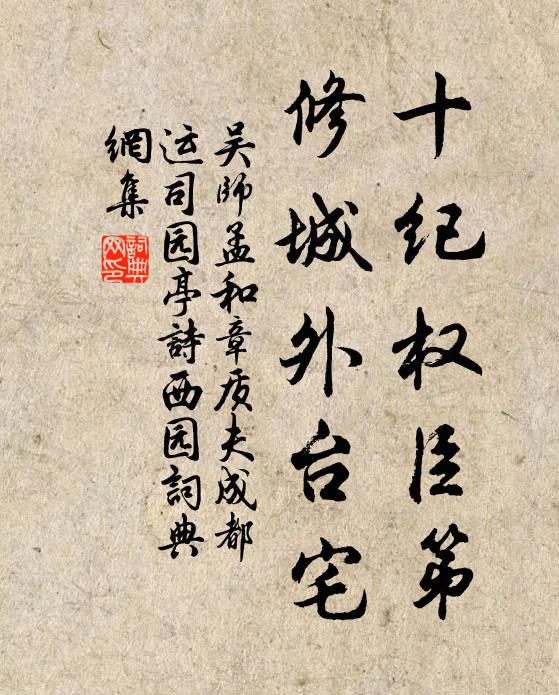 十纪权臣第
修城外台宅
吴师孟和章质夫成都
运司园亭詩西园詞典
網集
詞典
网印